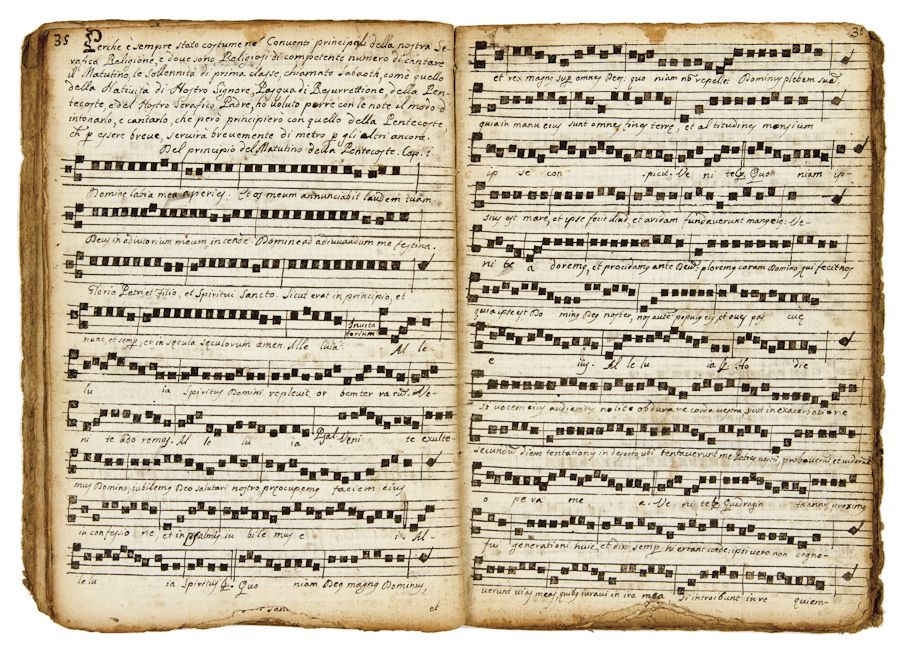 35
Perche è sempre stato costume ne' Conventi principali della nostra Se-
rafica Religione, e dove sono Religiosi di competente numero di cantare
il Matutino, le sollennità di prima classe, chiamate sabaoth, come quello
della Natività di Nostro Signore, Pasqua di Resurrettione, della Pen-
tecoste, e del Nostro Serafico Padre, ho voluto porre con le note il modo d'
intonarlo, e cantarlo, che però principierò con quello della Pentecoste,
ch' p esser breve, servirà brevemente di metro p gli altri ancora.
Del principio del Matutino della Pentecoste. Cap. i.
Domine labia mea aperies. Et os meum annunciabit laudem tuam
Deus in adiutorium meum intende. Domine ad adiuvandum me festina.
Gloria Patri, et Filio, et Spiritui Sancto. Sicut erat in principio, et
nunc, et semp, et in secula seculorum amen. Alle luia. Invita torium Al le
lu ia Spiritus Domini replevit or bem ter ra rum Ve-
ni te ado remus. Al le lu ia Psal. Veni te exulte-
mus Domino, iubilemus Deo salutari nostro preocupemus faciem eius
in confessio ne, et in psalmis iu bile mus e i Al-
le lu ia Spiritus Quo niam Deus magnus Dominus,
et
36
et rex magnus sup omnes Deos: quo niam no repellet Dominus plebem suam
quia in manu eius sunt omnes fines terre, et al titudines montium
ip se con spicit. Ve ni te Quo niam ip-
sius est mare, et ipse fecit illud, et aridam fundaverunt manus eius: Ve-
ni te a doremus, et procidamus ante Deum: ploremus coram Domino qui fecit nos
quia ipse est Do minus Deus noster, nos autē populus eius, et oves pas cue
e ius. Al le lu ia Ho die
Si vocem eius audieritis nolite obdurare corda vestra sicut in exacerbatione
secundum diem tentationis in deserto ubi tentaverunt me Patres vestri, probaverunt et viderunt
o pe ra me a. Ve ni te Quadragin ta annis proximo
fui generationi huic, et dixi semp hi errant corde: ipsi vero non cogno-
verunt vias meas, quibus iuravi in ira mea si introibunt in re quiem-